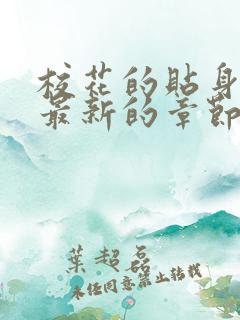 校花的貼身
最新的章節
葉超磊
未经同意禁止转载